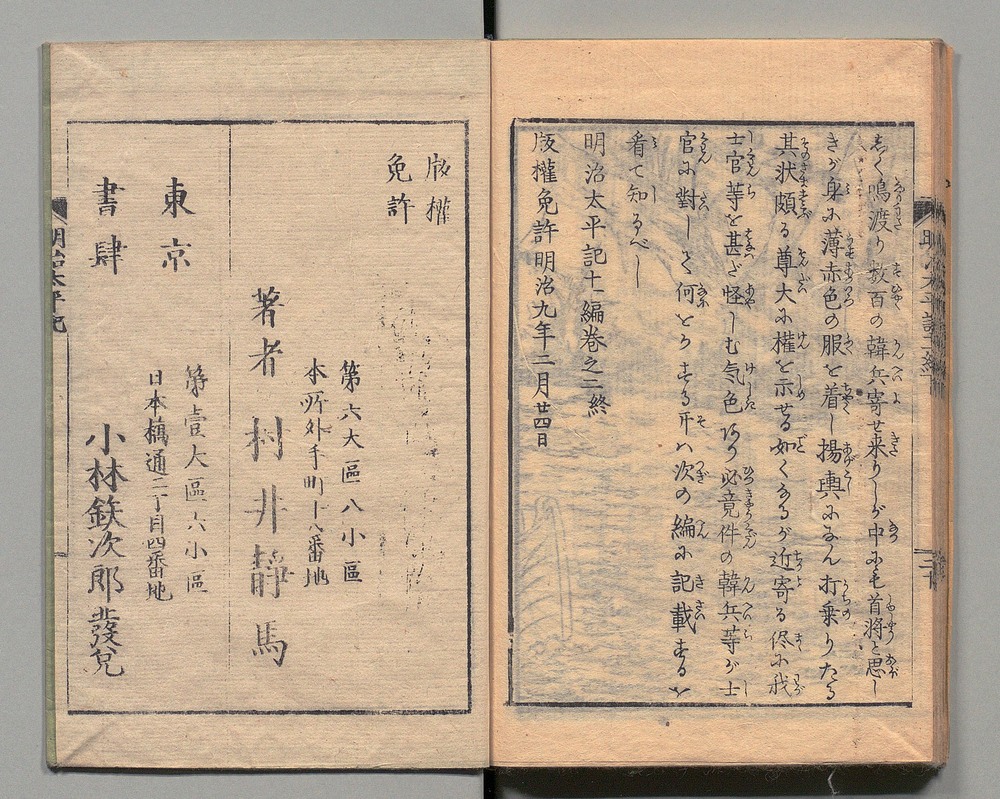 しく鳴渡り数百の韓兵寄せ来りしが中にも首将と思し
きが身に薄赤色の服を着し揚輿になん打乗りたる
其状頗る尊大に權を示せる如くなるが近寄る侭に我
士官等を甚ざ怪しむ気色あり必竟件の韓兵等が士
官に對して何とかする开ハ次の編に記載するを
看て知るべし
明治太平記十一編巻之二終
版權免許明治九年二月廿四日
版權
免許
第六大區八小區
本所外手町十八番地
著者 村井静馬
東京
書肆
第壹大區六小區
日本橋通二丁目四番地
小林鉄次郎發兌
明治太平記